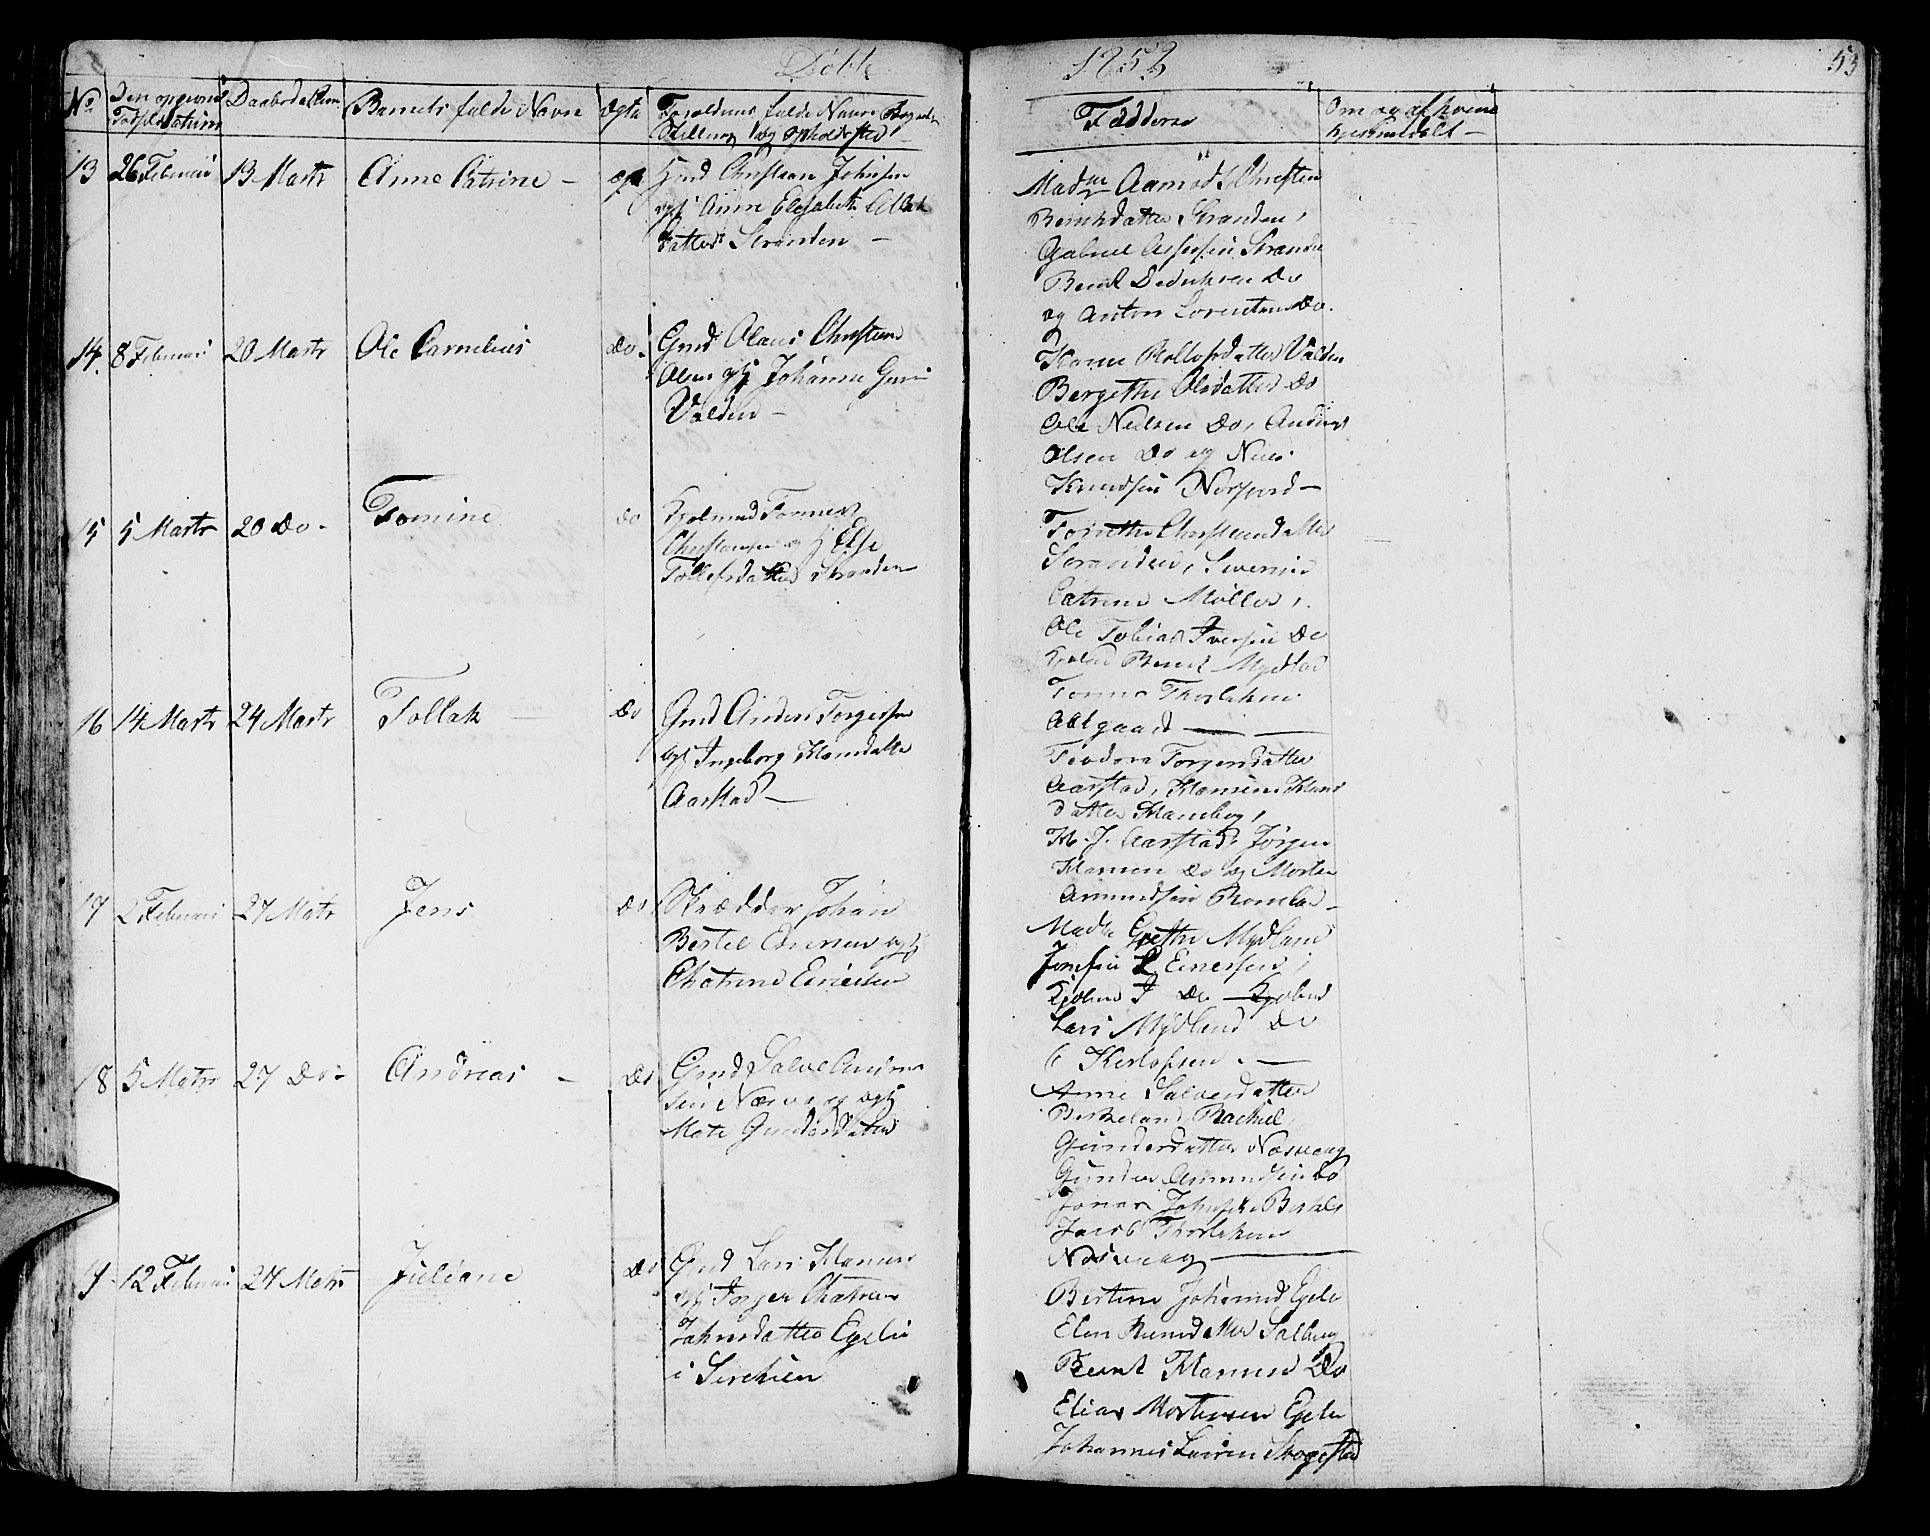 Döbte
1852
53
No
Den opgivne
Fødselsdatum
Daabsdatum
Barnets fulde Navn
ægte
Forældrenes fulde Navn
Stilling og Opholdsted
Faddere
Om og af hvem
hjemmedøbt
13
26 Februari
13 Marts
Anne Catrine
ægte
Gmd Christian Johnsen
og Anne Elisabeth
datter Stranden
Madme Aamod, Christin
Berntsdatter Stranden,
Gabriel Assersen Strande
Bernt Didriksen Do
og Anton Lorentsen Do.
14.
8 Februari
20 Marts
Ole Cornelius
Do.
Gmd Olaus Christian
Olsen og Johanne
Valden
Karen Rollofsdatter Valden
Bergethe Olsdatter Do
Ole Nielsen Do, Anders
Olsen Do og Niels
Knudsen
15
5 Marts
20 Do
Tomine
Do
Tønnes
Christensen og Else
Tollefsdatter Stranden
Torethe Christensdatter
Stranden, Severine
Catrine Møller,
Ole Tobias Iversen Do
Bernt Mydland
Tønnes Thorlaksen
Aalgaard
16
14 Marts
24 Marts
Tollak
Do
Gmd Anders Torgersen
og Ingeborg Hansdatter
Aarstad
Teodora Torgersdatter
Aarstad, Hansine Hans
datter Hamberg,
H. J. Aarstad, Jørgen
Hansen Do og Morten
Amundsen
17
2 Februari
27 Marts
Jens
Do
Skrædder Johan
Bertel Einersen og
Chatrine Einersen
Mad. Grethe Mydland
Josefin L Einersen,
J Do
Lars Mydland Do
18
5 Marts
27 Do
Andreas
Do
Gmd Salve Andrea
sen Næsvaag og
Mate Gundersdatter
Anne Salvesdatter
Berkeland, Rachiel
Gundersdatter Næsvaag
Gunder Amundsen Do
Jonas Johnsen
Jacob Thorlaksen
Næsvaag
19
12 Februari
27 Marts
Juliane
Do
Gmd Lars Hansen
og Inger Chatrine
Johnsdatter Egelie
i
Bertine Johanne Egeli
Elen
Bernt Hansen Do
Elias Mortensen Egeli
Johannes Larsen Skogestad